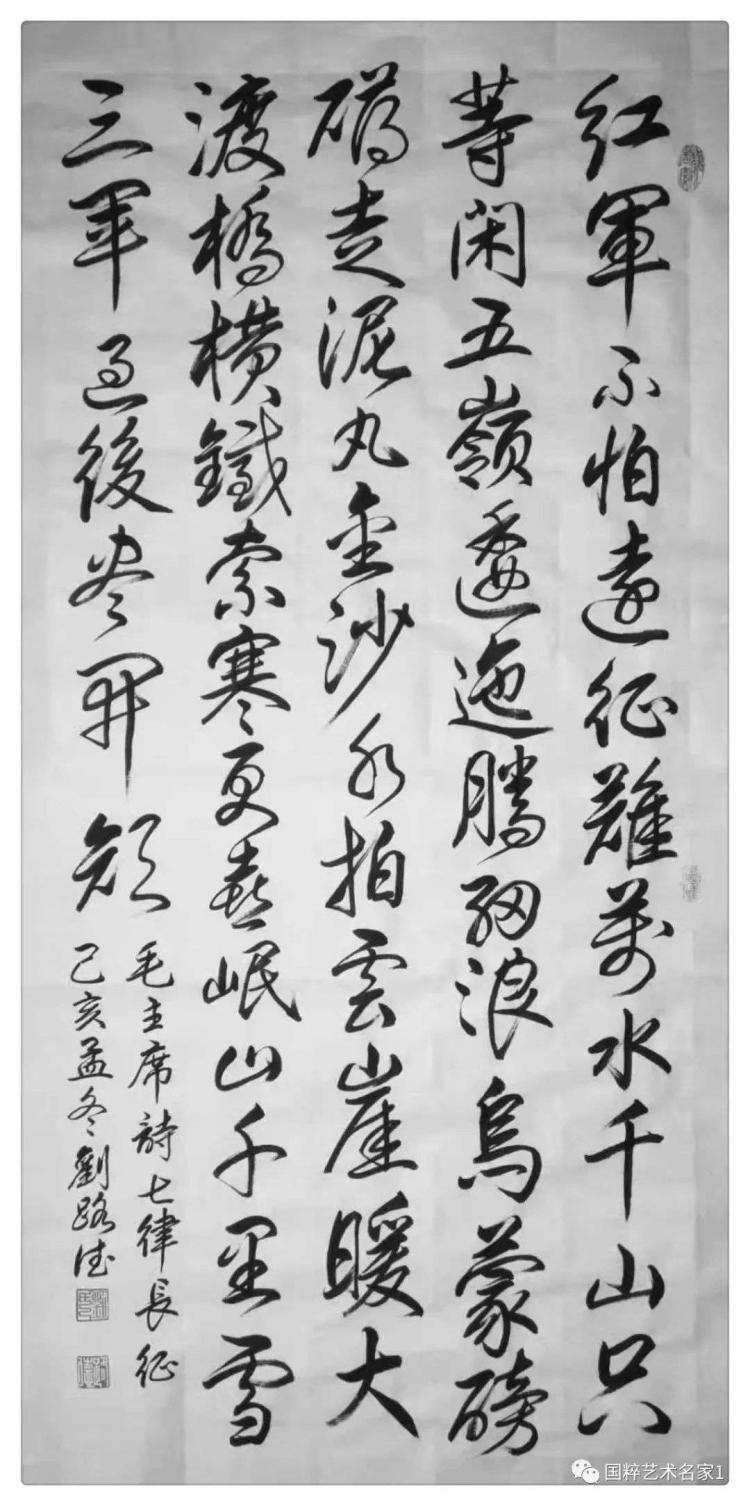 紅軍不怕遠征難萬水千山只
等閑五嶺逶迤騰細浪烏蒙磅
礴走泥丸金沙水拍雲崖暖大
渡橋橫鐵索寒更喜岷山千里雪
三軍過後盡開顏
毛主席詩七律長征
己亥孟冬劉路德
国粹艺术名家1